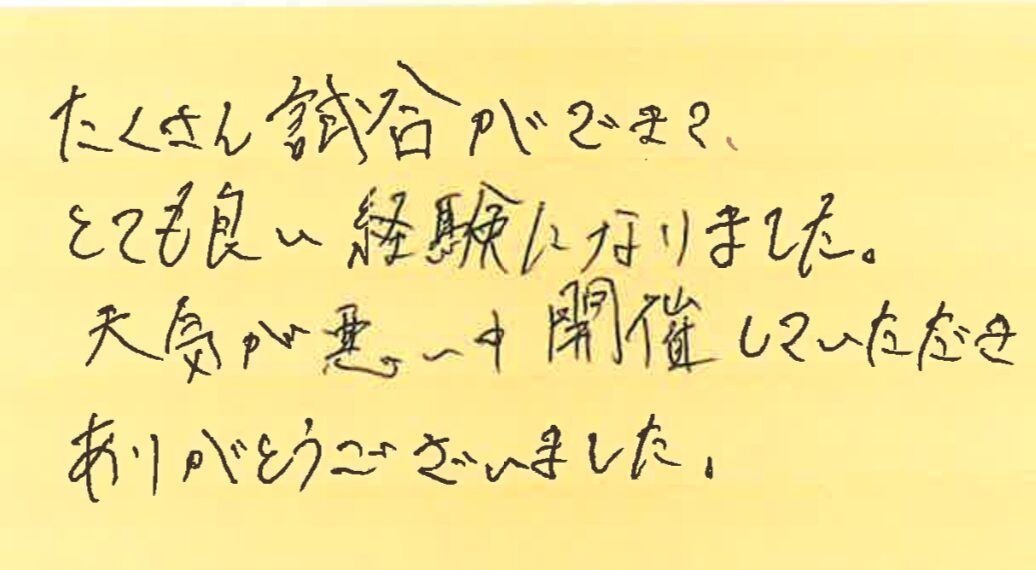 たくさん試合ができて、
とても良い経験になりました。
天気が悪い中開催していただき
ありがとうございました。